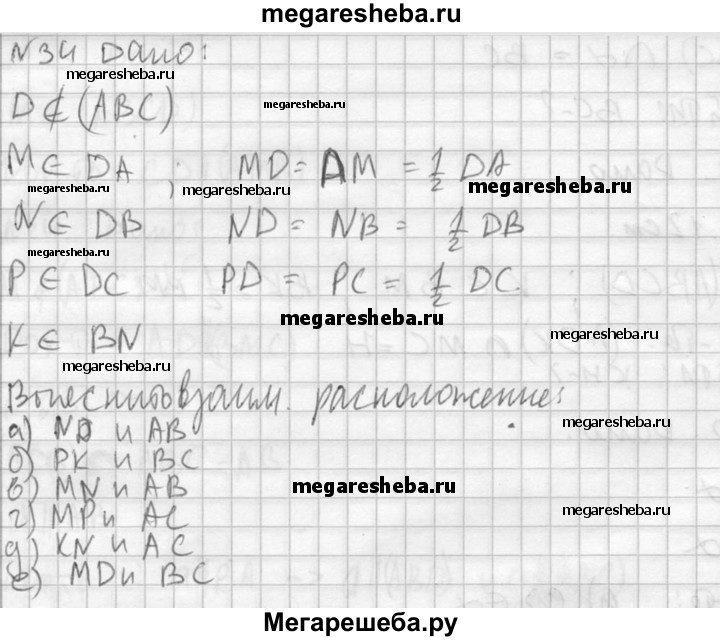 megaresheba.ru
N34 Дано:
megaresheba.ru
D∉(ABC) megaresheba.ru
M∈DA ; MD=AM=1/2 DA
megaresheba.ru megaresheba.ru megaresheba.ru
N∈DB ND=NB=1/2 DB
megaresheba.ru
P∈DC PD=PC=1/2 DC.
megaresheba.ru
K∈BN megaresheba.ru
megaresheba.ru
взаим. расположение:
megaresheba.ru
а) ND и AB
б) PK и BC
в) MN и AB megaresheba.ru
г) MP и AC megaresheba.ru
д) KN и AC
е) MD и BC
Мегарешеба.ру